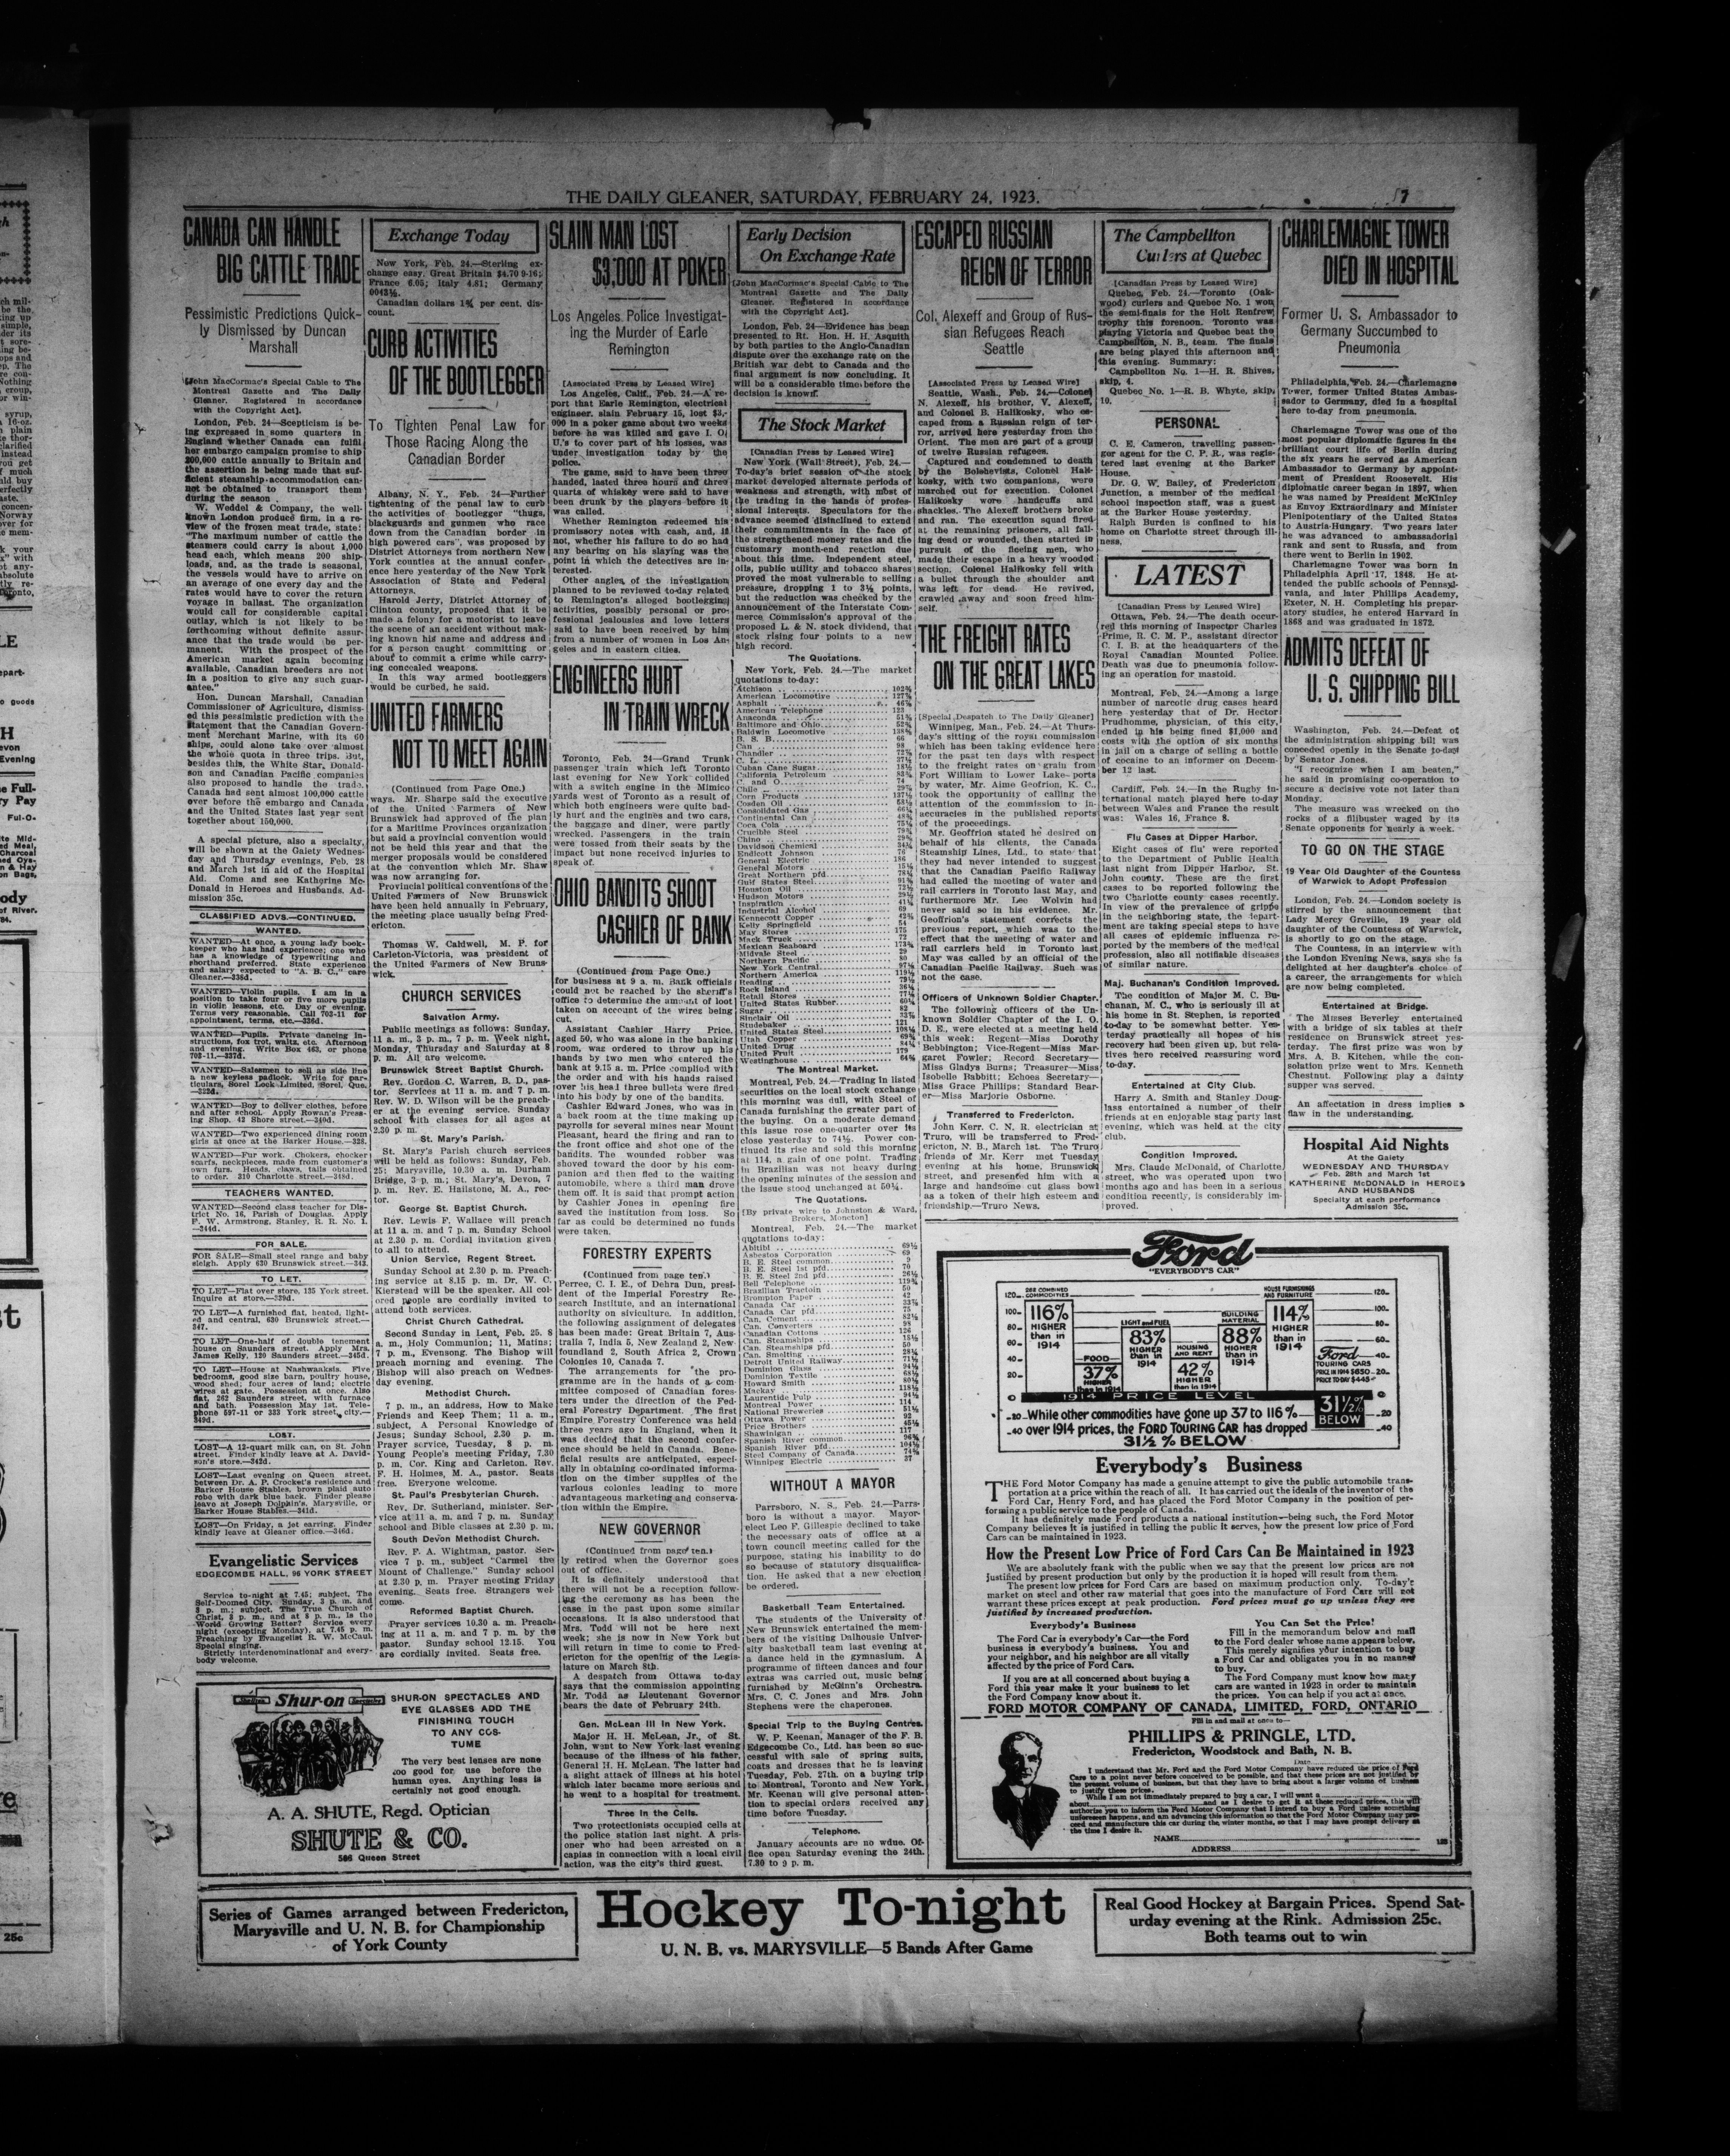 THE DAILY GLEANER, SATURDAY, FEBRUARY 24, 1923.
7
CANADA CAN HANDLE
BIG CATTLE TRADE
Pessimistic Predictions Quick-
ly Dismissed by Duncan
Marshall
[John MacCormac's Special Cable to The
Montreal Gazette and The Daily
Gleaner. Registered in accordance
with the Copyright Act].
London, Feb. 24—Scepticism is be-
ing expressed in some quarters in
England whether Canada can fulfil
her embargo campaign promise to ship
200,000 cattle annually to Britain and
the assertion is being made that suf-
ficient steamship accommodation can-
not be obtained to transport them
during the season.
W. Weddel & Company, the well-
known London produce firm, in a re-
view of the frozen meat trade, state:
"The maximum number of cattle the
steamers could carry is about 1,000
head each, which means 200 ship-
loads, and, as the trade is seasonal,
the vessels would have to arrive on
an average of one every day and the
rates would have to cover the return
voyage in ballast. The organization
would call for considerable capital
outlay, which is not likely to be
forthcoming without definite assur-
ance that the trade would be per-
manent. With the prospect of the
American market again becoming
available, Canadian breeders are not
in a position to give any such guar-
antee."
Hon. Duncan Marshall, Canadian
Commissioner of Agriculture, dismiss-
ed this pessimistic prediction with the
statement that the Canadian Govern-
ment Merchant Marine, with its 60
ships, could alone take over almost
the whole quota in three trips. But,
besides this, the White Star, Donald-
son and Canadian Pacific companies
also proposed to handle the trade.
Canada had sent almost 100,000 cattle
over before the embargo and Canada
and the United States last year sent
together about 150,000.
A special picture, also a specialty,
will be shown at the Gaiety Wednes-
day and Thursday evenings, Feb. 28
and March 1st in aid of the Hospital
Aid. Come and see Katherine Mc-
Donald in Heroes and Husbands. Ad-
mission 35c.
CLASSIFIED ADVS.—CONTINUED.
WANTED.
WANTED—At once, a young lady book-
keeper who has had experience; one who
has a knowledge of typewriting and
shorthand preferred. State experience
and salary expected to "A. B. C.," care
Gleaner.—335d.
WANTED—Violin pupils. I am in a
position to take four or five more pupils
in violin lessons, etc. Day or evening.
Terms very reasonable. Call 703-11 for
appointment, terms, etc.—336d.
WANTED—Pupils. Private dancing in-
structions, fox trot, waltz, etc. Afternoon
and evening. Write Box 463, or phone
703-11.—337d.
WANTED—Salesmen to sell as side line
a new keyless padlock. Write for par-
ticulars, Sorel Lock Limited, Sorel, Que.
WANTED—Boy to deliver clothes, before
and after school. Apply Rowan's Press-
ing Shop, 42 Shore street.—340d.
WANTED—Two experienced dining room
girls at once at the Barker House.—328.
WANTED—Fur work. Chokers, chocker
scarfs, neckpieces, made from customer's
own furs. Heads, claws, tails obtained
to order. 310 Charlotte street.—318d.
TEACHERS WANTED.
WANTED—Second class teacher for Dis-
trict No. 16, Parish of Douglas. Apply
F. W. Armstrong, Stanley, R. R. No. 1.
—344d.
FOR SALE.
FOR SALE—Small steel range and baby
sleigh. Apply 630 Brunswick street.—343.
TO LET.
TO LET—Flat over store, 135 York street.
Inquire at store.—329d.
TO LET—A furnished flat, heated, light-
ed and central, 630 Brunswick street.—
347.
TO LET—One-half of double tenement
house on Saunders street. Apply Mrs.
James Kelly, 120 Saunders street.—345d.
TO LET—House at Nashwaaksis. Five
bedrooms, good size barn, poultry house,
wood shed; four acres of land; electric
wires at gate. Possession at once. Also
flat, 262 Saunders street, with furnace
and bath. Possession May 1st. Tele-
phone 597-11 or 333 York street, city.—
349d.
LOST.
LOST—A 12-quart milk can, on St. John
street. Finder kindly leave at A. David-
son's store.—342d.
LOST—Last evening on Queen street,
between Dr. A. P. Crocket's residence and
Barker House Stables, brown plaid auto
robe with dark blue back. Finder please
leave at Joseph Dolphin's, Marysville, or
Barker House Stables.—341d.
LOST—On Friday, a jet earring. Finder
kindly leave at Gleaner office.—346d.
Evangelistic Services
EDGECOMBE HALL, 96 YORK STREET
Service to-night at 7.45; subject, The
Self-Doomed City. Sunday, 3 p. m. and
8 p. m.; subject, The True Church of
Christ, 3 p. m., and at 8 p. m., Is the
World Growing Better? Service every
night (excepting Monday), at 7.45 p. m.
Preaching by Evangelist R. W. McCaul.
Special singing.
Strictly interdenominational and every-
body welcome.
Shur-on
SHUR-ON SPECTACLES AND
EYE GLASSES ADD THE
FINISHING TOUCH
TO ANY COS-
TUME
The very best lenses are none
too good for use before the
human eyes. Anything less is
certainly not good enough.
A. A. SHUTE, Regd. Optician
SHUTE & CO.
566 Queen Street
Exchange Today
New York, Feb. 24.—Sterling ex-
change easy. Great Britain $4.70 9-16;
France 6.05; Italy 4.81; Germany
0043½.
Canadian dollars 1¾ per cent. dis-
count.
CURB ACTIVITIES
OF THE BOOTLEGGER
To Tighten Penal Law for
Those Racing Along the
Canadian Border
Albany, N. Y., Feb. 24—Further
tightening of the penal law to curb
the activities of bootlegger "thugs,
blackguards and gunmen who race
down from the Canadian border in
high powered cars", was proposed by
District Attorneys from northern New
York counties at the annual confer-
ence here yesterday of the New York
Association of State and Federal
Attorneys.
Harold Jerry, District Attorney of
Clinton county, proposed that it be
made a felony for a motorist to leave
the scene of an accident without mak-
ing known his name and address and
for a person caught committing or
about to commit a crime while carry-
ing concealed weapons.
In this way armed bootleggers
would be curbed, he said.
UNITED FARMERS
NOT TO MEET AGAIN
(Continued from Page One.)
ways. Mr. Sharpe said the executive
of the United Farmers of New
Brunswick had approved of the plan
for a Maritime Provinces organization
but said a provincial convention would
not be held this year and that the
merger proposals would be considered
at the convention which Mr. Shaw
was now arranging for.
Provincial political conventions of the
United Farmers of New Brunswick
have been held annually in February,
the meeting place usually being Fred-
ericton.
Thomas W. Caldwell, M. P. for
Carleton-Victoria, was president of
the United Farmers of New Bruns-
wick.
CHURCH SERVICES
Salvation Army.
Public meetings as follows: Sunday,
11 a. m., 3 p. m., 7 p. m. Week night,
Monday, Thursday and Saturday at 8
p. m. All are welcome.
Brunswick Street Baptist Church.
Rev. Gordon C. Warren, B. D., pas-
tor. Services at 11 a. m. and 7 p. m.
Rev. W. D. Wilson will be the preach-
er at the evening service. Sunday
school with classes for all ages at
2.30 p. m.
St. Mary's Parish.
St. Mary's Parish church services
will be held as follows: Sunday, Feb.
25: Marysville, 10.30 a. m. Durham
Bridge, 3 p. m.; St. Mary's, Devon, 7
p. m. Rev. E. Hailstone, M. A., rec-
tor.
George St. Baptist Church.
Rev. Lewis F. Wallace will preach
at 11 a. m. and 7 p. m. Sunday School
at 2.30 p. m. Cordial invitation given
to all to attend.
Union Service, Regent Street.
Sunday School at 2.30 p. m. Preach-
ing service at 8.15 p. m. Dr. W. C.
Kierstead will be the speaker. All col-
ored people are cordially invited to
attend both services.
Christ Church Cathedral.
Second Sunday in Lent, Feb. 25. 8
a. m., Holy Communion; 11, Matins;
7 p. m., Evensong. The Bishop will
preach morning and evening. The
Bishop will also preach on Wednes-
day evening.
Methodist Church.
7 p. m., an address, How to Make
Friends and Keep Them; 11 a. m.,
subject, A Personal Knowledge of
Jesus; Sunday School, 2.30 p. m.
Prayer service, Tuesday, 8 p. m.
Young People's meeting Friday, 7.30
p. m. Cor. King and Carleton. Rev.
F. H. Holmes, M. A., pastor. Seats
free. Everyone welcome.
St. Paul's Presbyterian Church.
Rev. Dr. Sutherland, minister. Ser-
vice at 11 a. m. and 7 p. m. Sunday
school and Bible classes at 2.30 p. m.
South Devon Methodist Church.
Rev. F. A. Wightman, pastor. Ser-
vice 7 p. m., subject "Carmel the
Mount of Challenge." Sunday school
at 2.30 p. m. Prayer meeting Friday
evening. Seats free. Strangers wel-
come.
Reformed Baptist Church.
Prayer services 10.30 a. m. Preach-
ing at 11 a. m. and 7 p. m. by the
pastor. Sunday school 12.15. You
are cordially invited. Seats free.
SLAIN MAN LOST
$3,000 AT POKER
Los Angeles Police Investigat-
ing the Murder of Earle
Remington
[Associated Press by Leased Wire]
Los Angeles, Calif., Feb. 24.—A re-
port that Earle Remington, electrical
engineer, slain February 15, lost $3,-
000 in a poker game about two weeks
before he was killed and gave I. O.
U.'s to cover part of his losses, was
under investigation today by the
police.
The game, said to have been three
handed, lasted three hours and three
quarts of whiskey were said to have
been drunk by the players before it
was called.
Whether Remington redeemed his
promissory notes with cash, and, if
not, whether his failure to do so had
any bearing on his slaying was the
point in which the detectives are in-
terested.
Other angles of the investigation
planned to be reviewed to-day related
to Remington's alleged bootlegging
activities, possibly personal or pro-
fessional jealousies and love letters
said to have been received by him
from a number of women in Los An-
geles and in eastern cities.
ENGINEERS HURT
IN TRAIN WRECK
Toronto, Feb. 24—Grand Trunk
passenger train which left Toronto
last evening for New York collided
with a switch engine in the Mimico
yards west of Toronto as a result of
which both engineers were quite bad-
ly hurt and the engines and two cars,
the baggage and diner, were partly
wrecked. Passengers in the train
were tossed from their seats by the
impact but none received injuries to
speak of.
OHIO BANDITS SHOOT
CASHIER OF BANK
(Continued from Page One.)
for business at 9 a. m. Bank officials
could not be reached by the sheriff's
office to determine the amount of loot
taken on account of the wires being
cut.
Assistant Cashier Harry Price,
aged 50, who was alone in the banking
room, was ordered to throw up his
hands by two men who entered the
bank at 9.15 a. m. Price complied with
the order and with his hands raised
over his head three bullets were fired
into his body by one of the bandits.
Cashier Edward Jones, who was in
a back room at the time making up
payrolls for several mines near Mount
Pleasant, heard the firing and ran to
the front office and shot one of the
bandits. The wounded robber was
shoved toward the door by his com-
panion and then fled to the waiting
automobile, where a third man drove
them off. It is said that prompt action
by Cashier Jones in opening fire
saved the institution from loss. So
far as could be determined no funds
were taken.
FORESTRY EXPERTS
(Continued from page ten.)
Perree, C. I. E., of Dehra Dun, presi-
dent of the Imperial Forestry Re-
search Institute, and an international
authority on siviculture. In addition,
the following assignment of delegates
has been made: Great Britain 7, Aus-
tralia 7, India 5, New Zealand 2, New-
foundland 2, South Africa 2, Crown
Colonies 10, Canada 7.
The arrangements for the pro-
gramme are in the hands of a com-
mittee composed of Canadian fores-
ters under the direction of the Fed-
eral Forestry Department. The first
Empire Forestry Conference was held
three years ago in England, when it
was decided that the second confer-
ence should be held in Canada. Bene-
ficial results are anticipated, especi-
ally in obtaining co-ordinated informa-
tion on the timber supplies of the
various colonies leading to more
advantageous marketing and conserva-
tion within the Empire.
NEW GOVERNOR
(Continued from page ten.)
ly retired when the Governor goes
out of office.
It is definitely understood that
there will not be a reception follow-
ing the ceremony as has been the
case in the past upon some similar
occasions. It is also understood that
Mrs. Todd will not be here next
week; she is now in New York but
will return in time to come to Fred-
ericton for the opening of the Legis-
lature on March 8th.
A despatch from Ottawa to-day
says that the commission appointing
Mr. Todd as Lieutenant Governor
bears the date of February 24th.
Gen. McLean Ill In New York.
Major H. H. McLean, Jr., of St.
John, went to New York last evening
because of the illness of his father,
General H. H. McLean. The latter had
a slight attack of illness at his hotel
which later became more serious and
he went to a hospital for treatment.
Three in the Cells.
Two protectionists occupied cells at
the police station last night. A pris-
oner who had been arrested on a
capias in connection with a local civil
action, was the city's third guest.
Early Decision
On Exchange Rate
[John MacCormac's Special Cable to The
Montreal Gazette and The Daily
Gleaner. Registered in accordance
with the Copyright Act].
London, Feb. 24—Evidence has been
presented to Rt. Hon. H. H. Asquith
by both parties to the Anglo-Canadian
dispute over the exchange rate on the
British war debt to Canada and the
final argument is now concluding. It
will be a considerable time before the
decision is known.
The Stock Market
[Canadian Press by Leased Wire]
New York (Wall Street), Feb. 24.—
To-day's brief session of the stock
market developed alternate periods of
weakness and strength, with most of
the trading in the hands of profes-
sional interests. Speculators for the
advance seemed disinclined to extend
their commitments in the face of
the strengthened money rates and the
customary month-end reaction due
about this time. Independent steel,
oils, public utility and tobacco shares
proved the most vulnerable to selling
pressure, dropping 1 to 3½ points,
but the reduction was checked by the
announcement of the Interstate Com-
merce Commission's approval of the
proposed L. & N. stock dividend, that
stock rising four points to a new
high record.
The Quotations.
New York, Feb. 24.—The market
quotations to-day:
Atchison
American Locomotive
Asphalt
American Telephone 123
Anaconda
Baltimore and Ohio
Baldwin Locomotive
B. S. B. 66
Can 98
Chandler
C. L.
Cuban Cane Sugar
California Petroleum
C. and O. 74
Chile
Corn Products
Cosden Oil
Consolidated Gas
Continental Can
Coca Cola
Crucible Steel
Chino
Davidson Chemical
Endicott Johnson
General Electric 186
General Motors
Great Northern pfd.
Gulf States Steel
Houston Oil
Hudson Motors
Inspiration
Industrial Alcohol 69
Kennecott Copper
Kelly Springfield 54
May Stores 175
Mack Truck 72
Mexican Seaboard
Midvale Steel
Northern Pacific 80
New York Central
Northern America
Reading
Rock Island
Retail Stores
United States Rubber
Sugar 82
Sinclair Oil
Studebaker 121
United States Steel
Utah Copper
United Drug
United Fruit 179
Westinghouse
The Montreal Market.
Montreal, Feb. 24.—Trading in listed
securities on the local stock exchange
this morning was dull, with Steel of
Canada furnishing the greater part of
the buying. On a moderate demand
this issue rose one-quarter over its
close yesterday to 74½. Power con-
tinued its rise and sold this morning
at 114, a gain of one point. Trading
in Brazilian was not heavy during
the opening minutes of the session and
the issue stood unchanged at 50¼.
The Quotations.
[By private wire to Johnston & Ward,
Brokers, Moncton]
Montreal, Feb. 24.—The market
quotations to-day:
Abitibi 69½
Asbestos Corporation 69
B. E. Steel common 9
B. E. Steel 1st pfd. 70
B. E. Steel 2nd pfd. 26½
Bell Telephone
Brazilian Tractoin 50
Brompton Paper 42
Canada Car
Canada Car pfd. 75
Can. Cement
Can. Converters 98
Canadian Cottons 126
Can. Steamships
Can. Steamships pfd. 50
Can. Smelting
Detroit United Railway
Dominion Glass
Dominion Textile
Howard Smith
Mackay
Laurentide Pulp
Montreal Power 114
National Breweries
Ottawa Power 93
Price Brothers
Shawinigan 117
Spanish River common
Spanish River pfd.
Steel Company of Canada
Winnipeg Electric 37
WITHOUT A MAYOR
Parrsboro, N. S., Feb. 24.—Parrs-
boro is without a mayor. Mayor-
elect Leo F. Gillespie declined to take
the necessary oats of office at a
town council meeting called for the
purpose, stating his inability to do
so because of statutory disqualifica-
tion. He asked that a new election
be ordered.
Basketball Team Entertained.
The students of the University of
New Brunswick entertained the mem-
bers of the visiting Dalhousie Univer-
sity basketball team last evening at
a dance held in the gymnasium. A
programme of fifteen dances and four
extras was carried out, music being
furnished by McGinn's Orchestra.
Mrs. C. C. Jones and Mrs. John
Stephens were the chaperones.
Special Trip to the Buying Centres.
W. P. Keenan, Manager of the F. B.
Edgecombe Co., Ltd. has been so suc-
cessful with sale of spring suits,
coats and dresses that he is leaving
Tuesday, Feb. 27th. on a buying trip
to Montreal, Toronto and New York.
Mr. Keenan will give personal atten-
tion to special orders received any
time before Tuesday.
Telephone.
January accounts are no wdue. Of-
fice open Saturday evening the 24th.
7.30 to 9 p. m.
ESCAPED RUSSIAN
REIGN OF TERROR
Col. Alexeff and Group of Rus-
sian Refugees Reach
Seattle
[Associated Press by Leased Wire]
Seattle, Wash., Feb. 24.—Colonel
N. Alexeff, his brother, V. Alexeff,
and Colonel B. Halikosky, who es-
caped from a Russian reign of ter-
ror, arrived here yesterday from the
Orient. The men are part of a group
of twelve Russian refugees.
Captured and condemned to death
by the Bolshevists, Colonel Hali-
kosky, with two companions, were
marched out for execution. Colonel
Halikosky wore handcuffs and
shackles. The Alexeff brothers broke
and ran. The execution squad fired
at the remaining prisoners, all fall-
ing dead or wounded, then started in
pursuit of the fleeing men, who
made their escape in a heavy wooded
section. Colonel Halikosky fell with
a bullet through the shoulder and
was left for dead. He revived,
crawled away and soon freed him-
self.
THE FREIGHT RATES
ON THE GREAT LAKES
[Special Despatch to The Daily Gleaner]
Winnipeg, Man., Feb. 24.—At Thurs-
day's sitting of the royal commission
which has been taking evidence here
for the past ten days with respect
to the freight rates on grain from
Fort William to Lower Lake ports
by water, Mr. Aime Geofrion, K. C.,
took the opportunity of calling the
attention of the commission to in-
accuracies in the published reports
of the proceedings.
Mr. Geoffrion stated he desired on
behalf of his clients, the Canada
Steamship Lines, Ltd., to state that
they had never intended to suggest
that the Canadian Pacific Railway
had called the meeting of water and
rail carriers in Toronto last May, and
furthermore Mr. Leo Wolvin had
never said so in his evidence. Mr.
Geoffrion's statement corrects the
previous report, which was to the
effect that the meeting of water and
rail carriers held in Toronto last
May was called by an official of the
Canadian Pacific Railway. Such was
not the case.
Officers of Unknown Soldier Chapter.
The following officers of the Un-
known Soldier Chapter of the I. O.
D. E., were elected at a meeting held
this week: Regent—Miss Dorothy
Bebbington; Vice-Regent—Miss Mar-
garet Fowler; Record Secretary—
Miss Gladys Burns; Treasurer—Miss
Isobelle Babbitt; Echoes Secretary—
Miss Grace Phillips; Standard Bear-
er—Miss Marjorie Osborne.
Transferred to Fredericton.
John Kerr, C. N. R. electrician at
Truro, will be transferred to Fred-
ericton, N. B., March 1st. The Truro
friends of Mr. Kerr met Tuesday
evening at his home, Brunswick
street, and presented him with a
large and handsome cut glass bowl
as a token of their high esteem and
friendship.—Truro News.
The Campbellton
Curlers at Quebec
[Canadian Press by Leased Wire]
Quebec, Feb. 24.—Toronto (Oak-
wood) curlers and Quebec No. 1 won
the semi-finals for the Holt Renfrew
trophy this forenoon. Toronto was
playing Victoria and Quebec beat the
Campbellton, N. B., team. The finals
are being played this afternoon and
this evening. Summary:
Campbellton No. 1—H. R. Shives,
skip, 4.
Quebec No. 1—R. B. Whyte, skip,
10.
PERSONAL
C. E. Cameron, travelling passen-
ger agent for the C. P. R., was regis-
tered last evening at the Barker
House.
Dr. G. W. Bailey, of Fredericton
Junction, a member of the medical
school inspection staff, was a guest
at the Barker House yesterday.
Ralph Burden is confined to his
home on Charlotte street through ill-
ness.
LATEST
[Canadian Press by Leased Wire]
Ottawa, Feb. 24.—The death occur-
red this morning of Inspector Charles
Prime, R. C. M. P., assistant director
C. I. B. at the headquarters of the
Royal Canadian Mounted Police.
Death was due to pneumonia follow-
ing an operation for mastoid.
Montreal, Feb. 24.—Among a large
number of narcotic drug cases heard
here yesterday that of Dr. Hector
Prudhomme, physician, of this city,
ended in his being fined $1,000 and
costs with the option of six months
in jail on a charge of selling a bottle
of cocaine to an informer on Decem-
ber 12 last.
Cardiff, Feb. 24.—In the Rugby in-
ternational match played here to-day
between Wales and France the result
was: Wales 16, France 8.
Flu Cases at Dipper Harbor.
Eight cases of flu' were reported
to the Department of Public Health
last night from Dipper Harbor, St.
John county. These are the first
cases to be reported following the
two Charlotte county cases recently.
In view of the prevalence of grippe
in the neighboring state, the depart-
ment are taking special steps to have
all cases of epidemic influenza re-
ported by the members of the medical
profession, also all notifiable diseases
of similar nature.
Maj. Buchanan's Condition Improved.
The condition of Major M. C. Bu-
chanan, M. C., who is seriously ill at
his home in St. Stephen, is reported
to-day to be somewhat better. Yes-
terday practically all hopes of his
recovery had been given up, but rela-
tives here received reassuring word
to-day.
Entertained at City Club.
Harry A. Smith and Stanley Doug-
lass entertained a number of their
friends at en enjoyable stag party last
evening, which was held at the city
club.
Condition Improved.
Mrs. Claude McDonald, of Charlotte
street, who was operated upon two
months ago and has been in a serious
condition recently, is considerably im-
proved.
CHARLEMAGNE TOWER
DIED IN HOSPITAL
Former U. S. Ambassador to
Germany Succumbed to
Pneumonia
Philadelphia, Feb. 24.—Charlemagne
Tower, former United States Ambas-
sador to Germany, died in a hospital
here to-day from pneumonia.
Charlemagne Tower was one of the
most popular diplomatic figures in the
brilliant court life of Berlin during
the six years he served as American
Ambassador to Germany by appoint-
ment of President Roosevelt. His
diplomatic career began in 1897, when
he was named by President McKinley
as Envoy Extraordinary and Minister
Plenipotentiary of the United States
to Austria-Hungary. Two years later
he was advanced to ambassadorial
rank and sent to Russia, and from
there went to Berlin in 1902.
Charlemagne Tower was born in
Philadelphia April 17, 1848. He at-
tended the public schools of Pennsyl-
vania, and later Phillips Academy,
Exeter, N. H. Completing his prepar-
atory studies, he entered Harvard in
1868 and was graduated in 1872.
ADMITS DEFEAT OF
U. S. SHIPPING BILL
Washington, Feb. 24.—Defeat of
the administration shipping bill was
conceded openly in the Senate to-day
by Senator Jones.
"I recognize when I am beaten,"
he said in promising co-operation to
secure a decisive vote not later than
Monday.
The measure was wrecked on the
rocks of a filibuster waged by its
Senate opponents for nearly a week.
TO GO ON THE STAGE
19 Year Old Daughter of the Countess
of Warwick to Adopt Profession
London, Feb. 24.—London society is
stirred by the announcement that
Lady Mercy Greville, 19 year old
daughter of the Countess of Warwick,
is shortly to go on the stage.
The Countess, in an interview with
the London Evening News, says she is
delighted at her daughter's choice of
a career, the arrangements for which
are now being completed.
Entertained at Bridge.
The Misses Beverley entertained
with a bridge of six tables at their
residence on Brunswick street yes-
terday. The first prize was won by
Mrs. A. B. Kitchen, while the con-
solation prize went to Mrs. Kenneth
Chestnut. Following play a dainty
supper was served.
An affectation in dress implies a
flaw in the understanding.
Hospital Aid Nights
At the Gaiety
WEDNESDAY AND THURSDAY
Feb. 28th and March 1st
KATHERINE McDONALD in HEROES
AND HUSBANDS
Specialty at each performance
Admission 35c.
Ford
"EVERYBODY'S CAR"
116%
HIGHER
than in
1914
FOOD
37%
HIGHER
than in 1914
LIGHT and FUEL
83%
HIGHER
than in
1914
HOUSING
AND RENT
42%
HIGHER
than in 1914
BUILDING
MATERIAL
88%
HIGHER
than in
1914
HOUSE FURNISHINGS
AND FURNITURE
114%
HIGHER
than in
1914
Ford
TOURING CARS
PRICE IN 1914 $650
PRICE TO-DAY $445
1914 PRICE LEVEL
31½%
BELOW
While other commodities have gone up 37 to 116%
over 1914 prices, the FORD TOURING CAR has dropped
31½ % BELOW
Everybody's Business
THE Ford Motor Company has made a genuine attempt to give the public automobile trans-
portation at a price within the reach of all. It has carried out the ideals of the inventor of the
Ford Car, Henry Ford, and has placed the Ford Motor Company in the position of per-
forming a public service to the people of Canada.
It has definitely made Ford products a national institution—being such, the Ford Motor
Company believes it is justified in telling the public it serves, how the present low price of Ford
Cars can be maintained in 1923.
How the Present Low Price of Ford Cars Can Be Maintained in 1923
We are absolutely frank with the public when we say that the present low prices are not
justified by present production but only by the production it is hoped will result from them.
The present low prices for Ford Cars are based on maximum production only. To-day's
market on steel and other raw material that goes into the manufacture of Ford Cars will not
warrant these prices except at peak production. Ford prices must go up unless they are
justified by increased production.
Everybody's Business
The Ford Car is everybody's Car—the Ford
business is everybody's business. You and
your neighbor, and his neighbor are all vitally
affected by the price of Ford Cars.
If you are at all concerned about buying a
Ford this year make it your business to let
the Ford Company know about it.
You Can Set the Price!
Fill in the memorandum below and mail
to the Ford dealer whose name appears below.
This merely signifies your intention to buy
a Ford Car and obligates you in no manner
to buy.
The Ford Company must know how many
cars are wanted in 1923 in order to maintain
the prices. You can help if you act at once.
FORD MOTOR COMPANY OF CANADA, LIMITED, FORD, ONTARIO
Fill in and mail at once to
PHILLIPS & PRINGLE, LTD.
Fredericton, Woodstock and Bath, N. B.
Date
I understand that Mr. Ford and the Ford Motor Company have reduced the price of Ford
Cars to a point never before conceived to be possible, and that these prices are not justified by
the present volume of business, but that they have to bring about a larger volume of business
to justify these prices.
While I am not immediately prepared to buy a car, I will want a
about and as I desire to get it at these reduced prices, this will
authorize you to inform the Ford Motor Company that I intend to buy a Ford unless something
unforeseen happens, and am advancing this information so that the Ford Motor Company may pro-
ceed and manufacture this car during the winter months, so that I may have prompt delivery at
the time I desire it.
NAME
ADDRESS
Series of Games arranged between Fredericton,
Marysville and U. N. B. for Championship
of York County
Hockey To-night
U. N. B. vs. MARYSVILLE—5 Bands After Game
Real Good Hockey at Bargain Prices. Spend Sat-
urday evening at the Rink. Admission 25c.
Both teams out to win